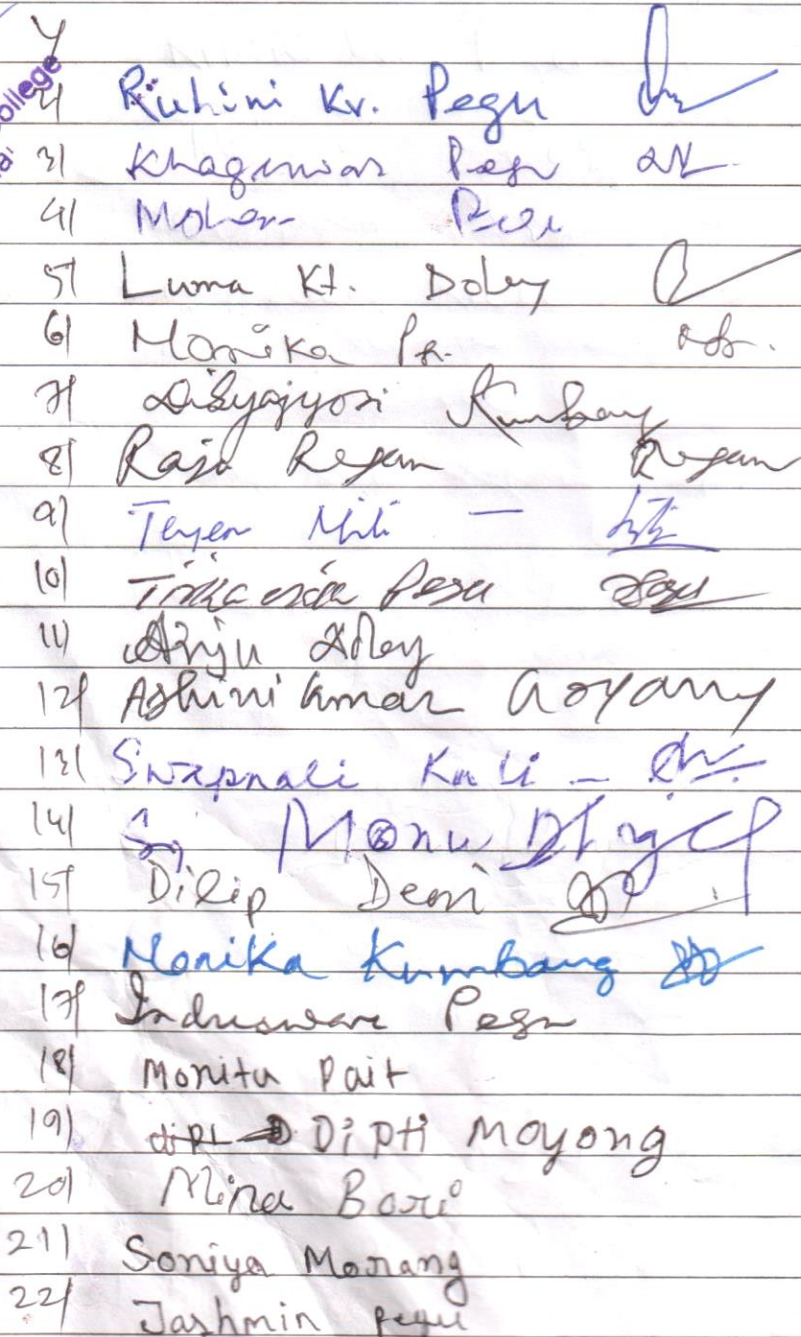 ollege
2) Ruhini Kr. Pegu
3) Khageswar Pegu
4) Mohan Pegu
5) Luma Kt. Doley
6) Monika
7) Dibyajyoti Kumbang
8) Raja Regan Regan
9) Teyen Mili —
10) Pegu
11) Anju Doley
12) Ashini kumar Goyary
13) Swapnali Kuli -
14) Monu
15) Dilip Deori
16) Monika Kumbang
17) Indreswar Pegu
18) Monitu Pait
19) Dipti Moyong
20) Mina Bori
21) Soniya Morang
22) Jashmin pegu